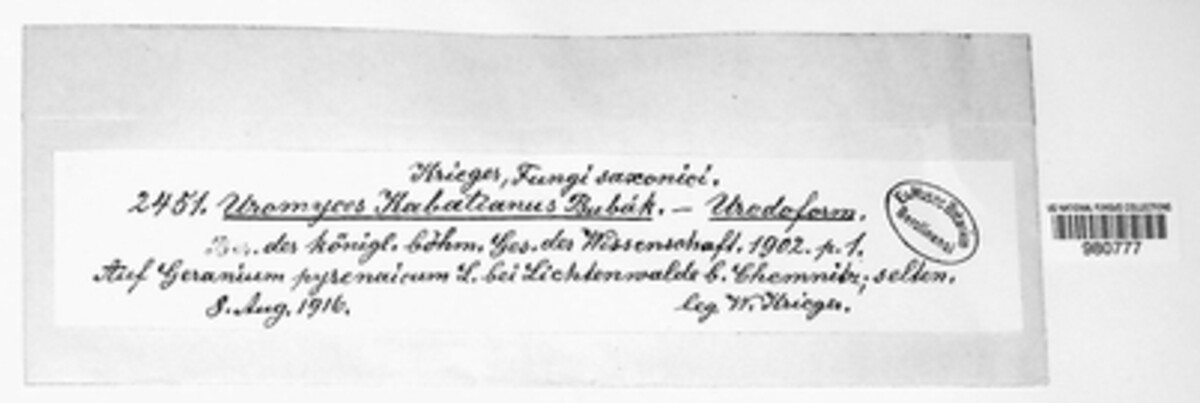 Krieger, Fungi saxonici.
2451. Uromyces Kabatianus Bubák. — Uredoform.
Ber. der königl. böhm. Ges. der Wissenschaft. 1902. p. 1.
Auf Geranium pyrenaicum L. bei Lichtenwalde b. Chemnitz; selten.
8. Aug. 1916. leg W. Krieger.
Ex Museo Botanico
Berolinensi
US NATIONAL FUNGUS COLLECTIONS
980777